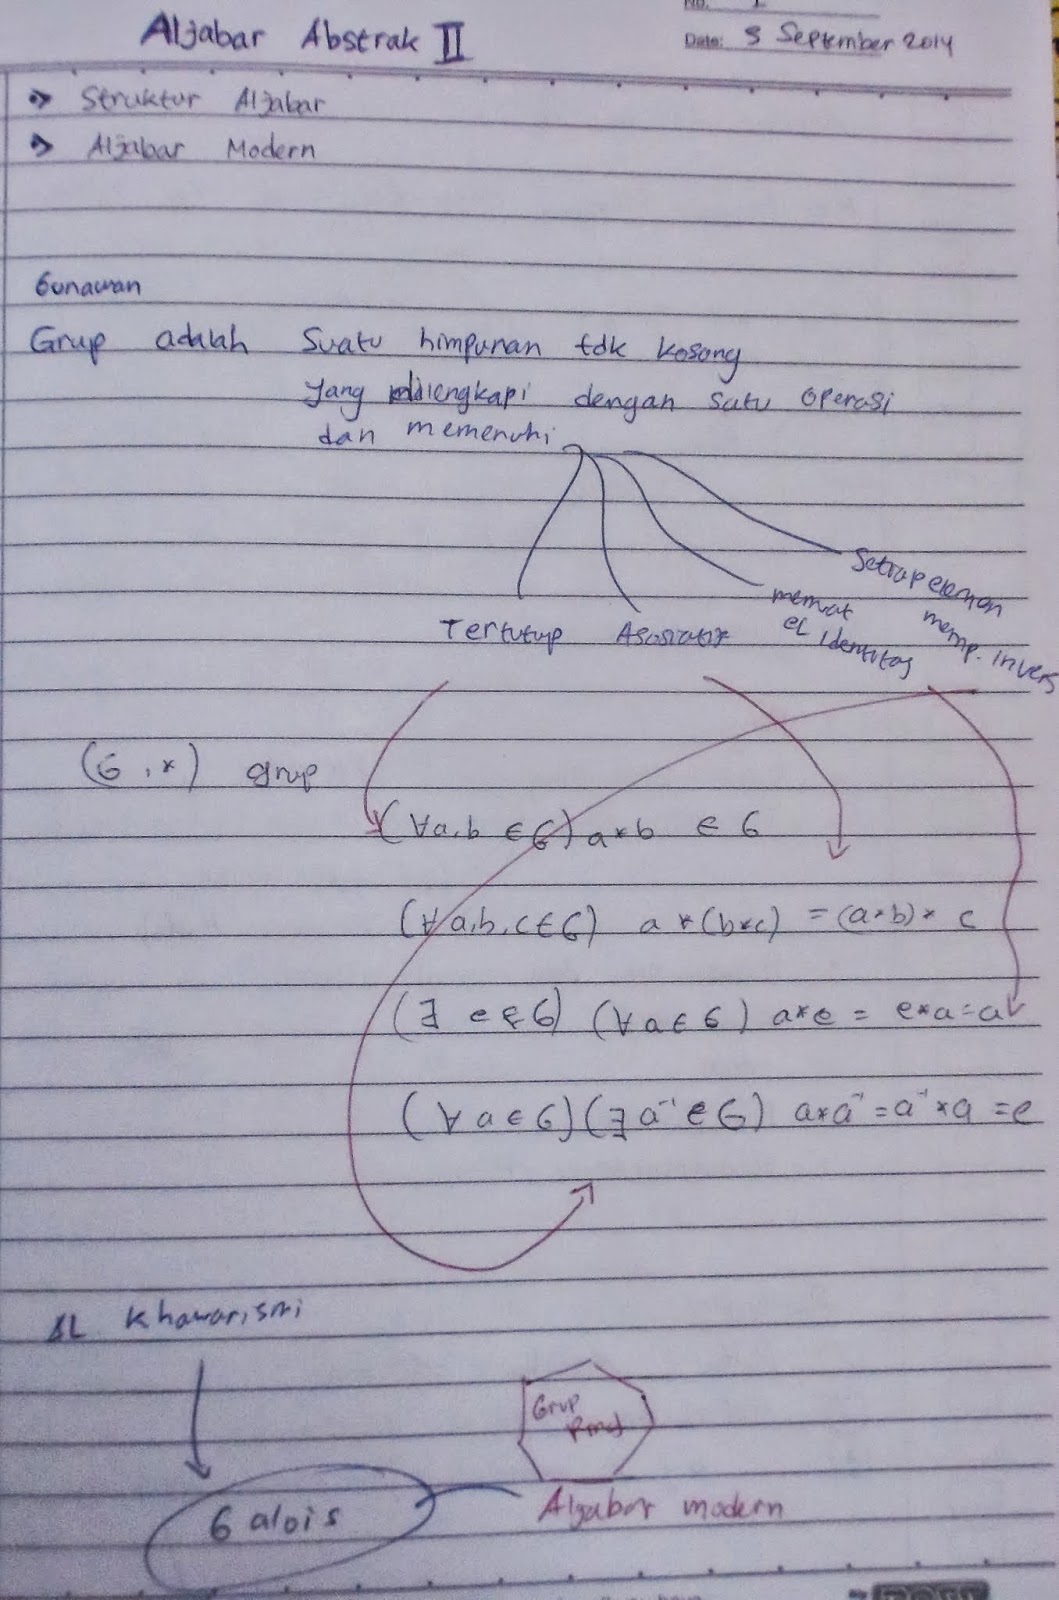 Aljabar Abstrak II
No. 1
Date: 5 September 2014
Struktur Aljabar
Aljabar Modern
Gunawan
Grup adalah Suatu himpunan tdk kosong
yang dilengkapi dengan satu operasi
dan memenuhi
Tertutup Asosiatif memuat el identitas Setiap elemen memp. invers
(G, *) grup
(∀a,b ∈ G) a*b ∈ G
(∀a,b,c ∈ G) a*(b*c) = (a*b)*c
(∃ e ∈ G) (∀a ∈ G) a*e = e*a = a
(∀a ∈ G)(∃ a⁻¹ ∈ G) a*a⁻¹ = a⁻¹*a = e
AL Khawarismi
Grup
Ring
Galois
Aljabar modern